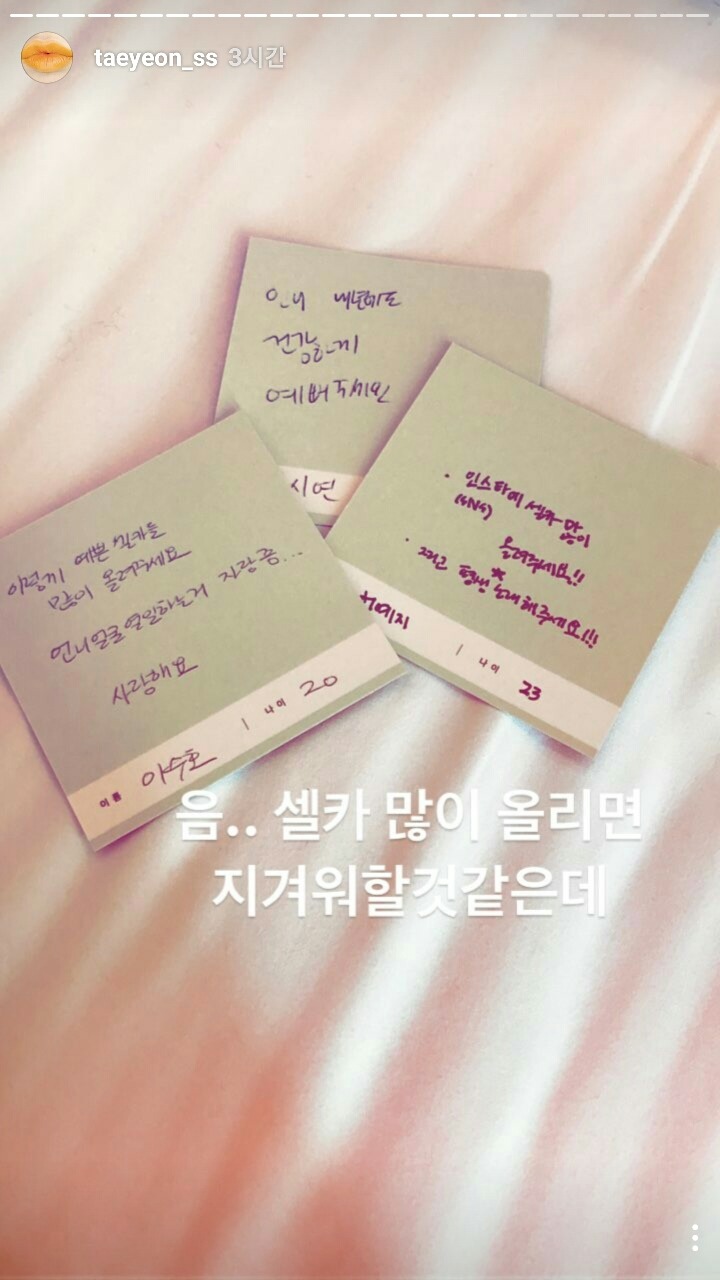 taeyeon_ss 3시간
언니 내년에도
건강하게
예뻐주세요
시연
· 인스타에 셀카 많이
(SNS)
올려주세요!!
· 그리고 평생 노래해주세요!!!
나이 23
이렇게 예쁜 셀카들
많이 올려주세요
언니얼굴열일하는거 자랑좀...
사랑해요
이름 이수호 | 나이 20
음.. 셀카 많이 올리면
지겨워할것같은데